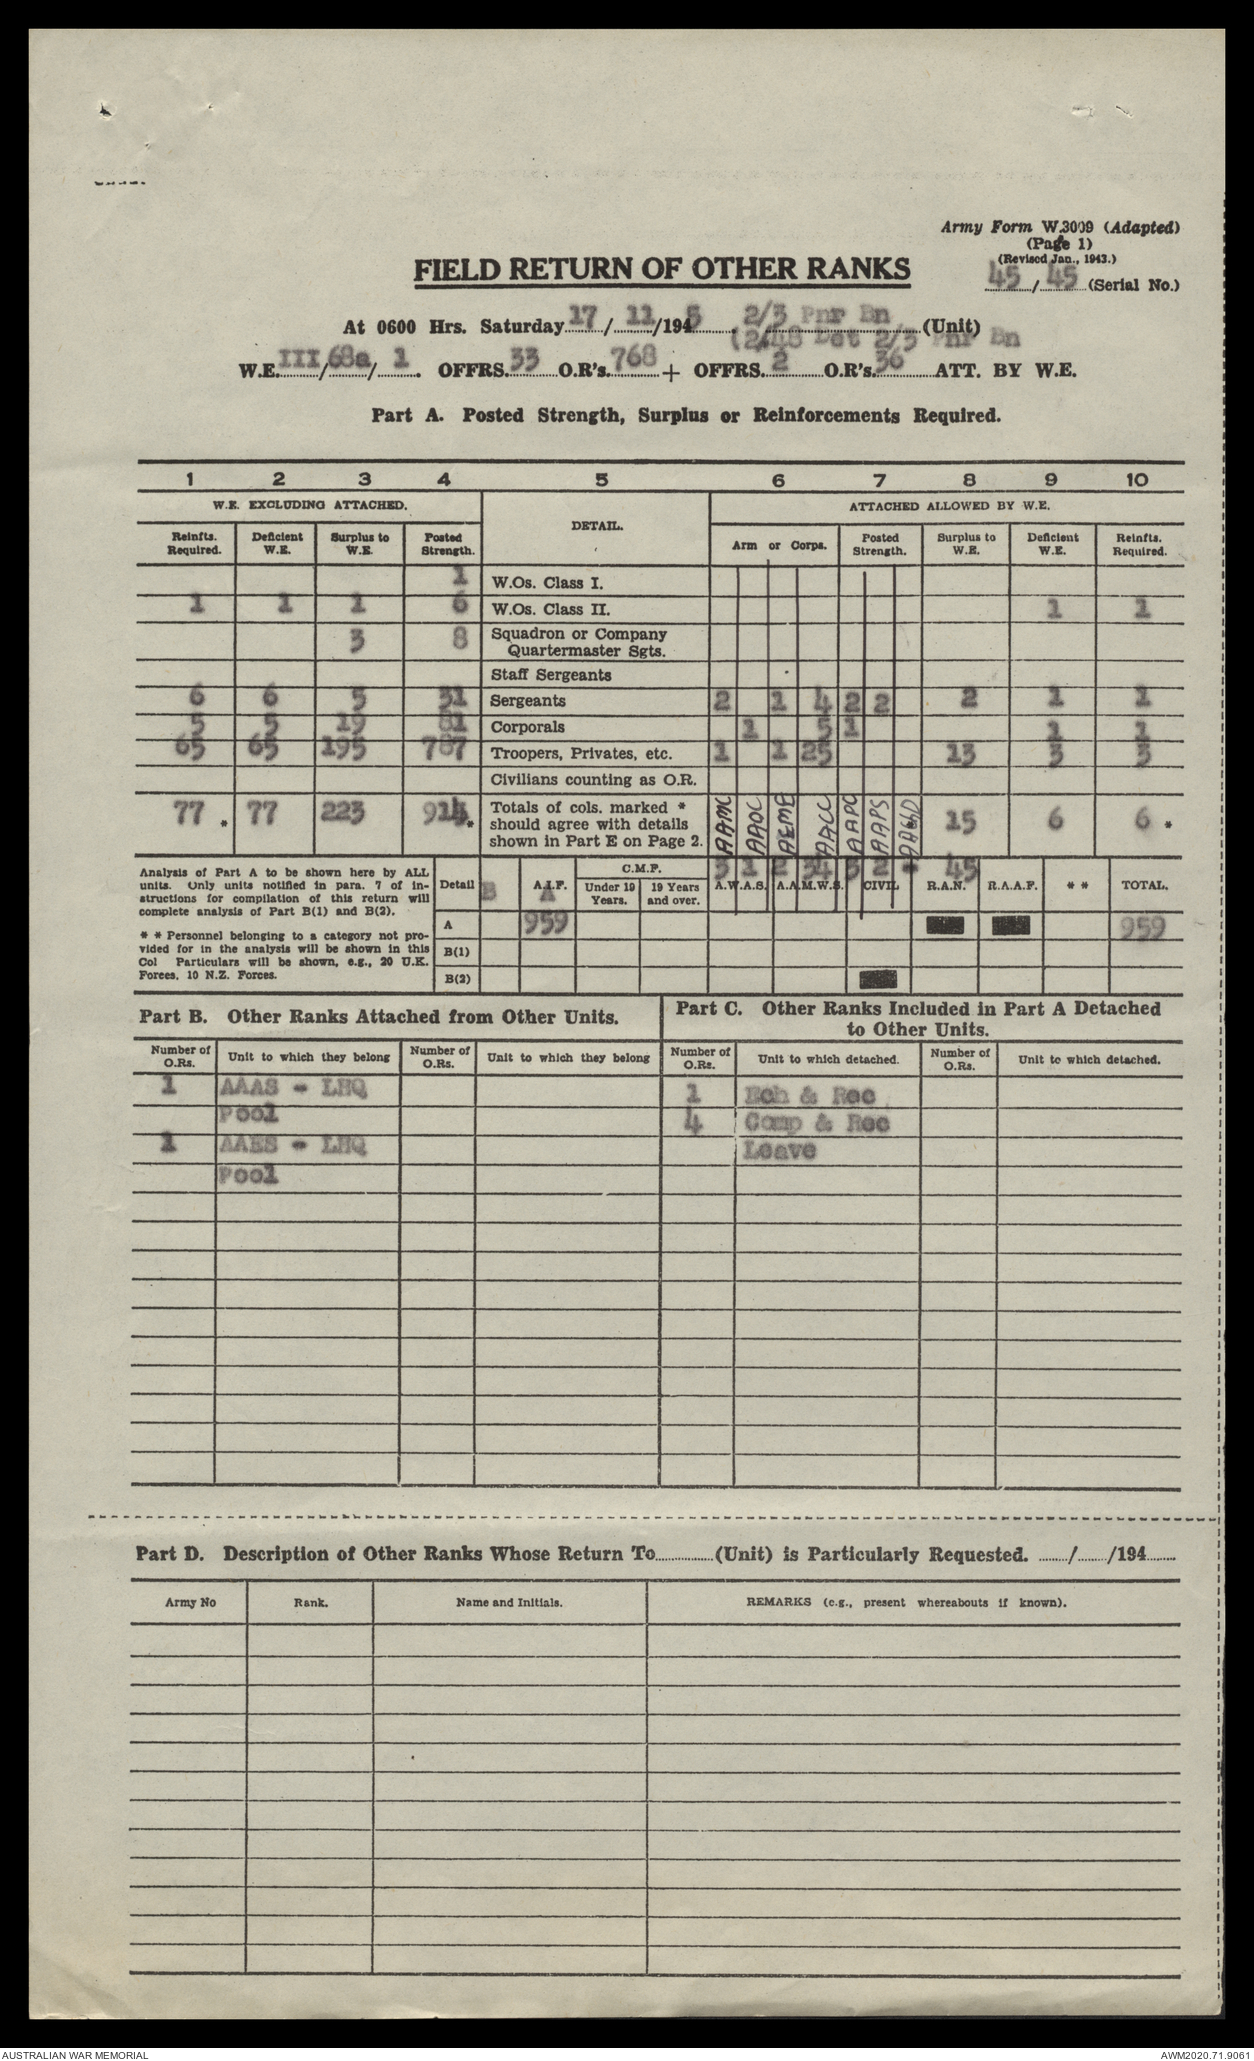 Army Form W.3009 (Adapted)
(Page 1)
(Revised Jan., 1943.)
45/45 (Serial No.)
FIELD RETURN OF OTHER RANKS
At 0600 Hrs. Saturday 17/11/1945 2/3 Pnr Bn (Unit)
(2/48 Det 2/3 Pnr Bn
W.E. III/68a/1. OFFRS. 33 O.R's. 768 + OFFRS. 2 O.R's. 36 ATT. BY W.E.
Part A. Posted Strength, Surplus or Reinforcements Required.
1 2 3 4 5 6 7 8 9 10
W.E. EXCLUDING ATTACHED. DETAIL. ATTACHED ALLOWED BY W.E.
Reinfts. Required. Deficient W.E. Surplus to W.E. Posted Strength. Arm or Corps. Posted Strength. Surplus to W.E. Deficient W.E. Reinfts. Required.
1 W.Os. Class I.
1 1 1 6 W.Os. Class II. 1 1
3 8 Squadron or Company
Quartermaster Sgts.
Staff Sergeants
6 6 5 31 Sergeants 2 1 4 2 2 2 1 1
5 5 19 81 Corporals 1 5 1 1 1
65 65 195 787 Troopers, Privates, etc. 1 1 25 13 3 3
Civilians counting as O.R.
77 * 77 223 914 * Totals of cols. marked * should agree with details shown in Part E on Page 2. AAMC AAOC AEME AACC AAPC AAPS 15 6 6 *
3 1 2 34 3 2 - 45
Analysis of Part A to be shown here by ALL
units. Only units notified in para. 7 of in-
structions for compilation of this return will
complete analysis of Part B(1) and B(2).
* * Personnel belonging to a category not pro-
vided for in the analysis will be shown in this
Col Particulars will be shown, e.g., 20 U.K.
Forces, 10 N.Z. Forces.
Detail B A.I.F. A C.M.F. Under 19 Years. 19 Years and over. A.W.A.S. A.A.M.W.S. CIVIL R.A.N. R.A.A.F. * * TOTAL.
A 959 959
B(1)
B(2)
Part B. Other Ranks Attached from Other Units.
Number of O.Rs. Unit to which they belong Number of O.Rs. Unit to which they belong
1 AAAS - LHQ
Pool
1 AAES - LHQ
Pool
Part C. Other Ranks Included in Part A Detached
to Other Units.
Number of O.Rs. Unit to which detached. Number of O.Rs. Unit to which detached.
1 Ech & Rec
4 Comp & Rec
Leave
Part D. Description of Other Ranks Whose Return To............(Unit) is Particularly Requested. ......../......../194........
Army No Rank. Name and Initials. REMARKS (e.g., present whereabouts if known).
AUSTRALIAN WAR MEMORIAL
AWM2020.71.9061